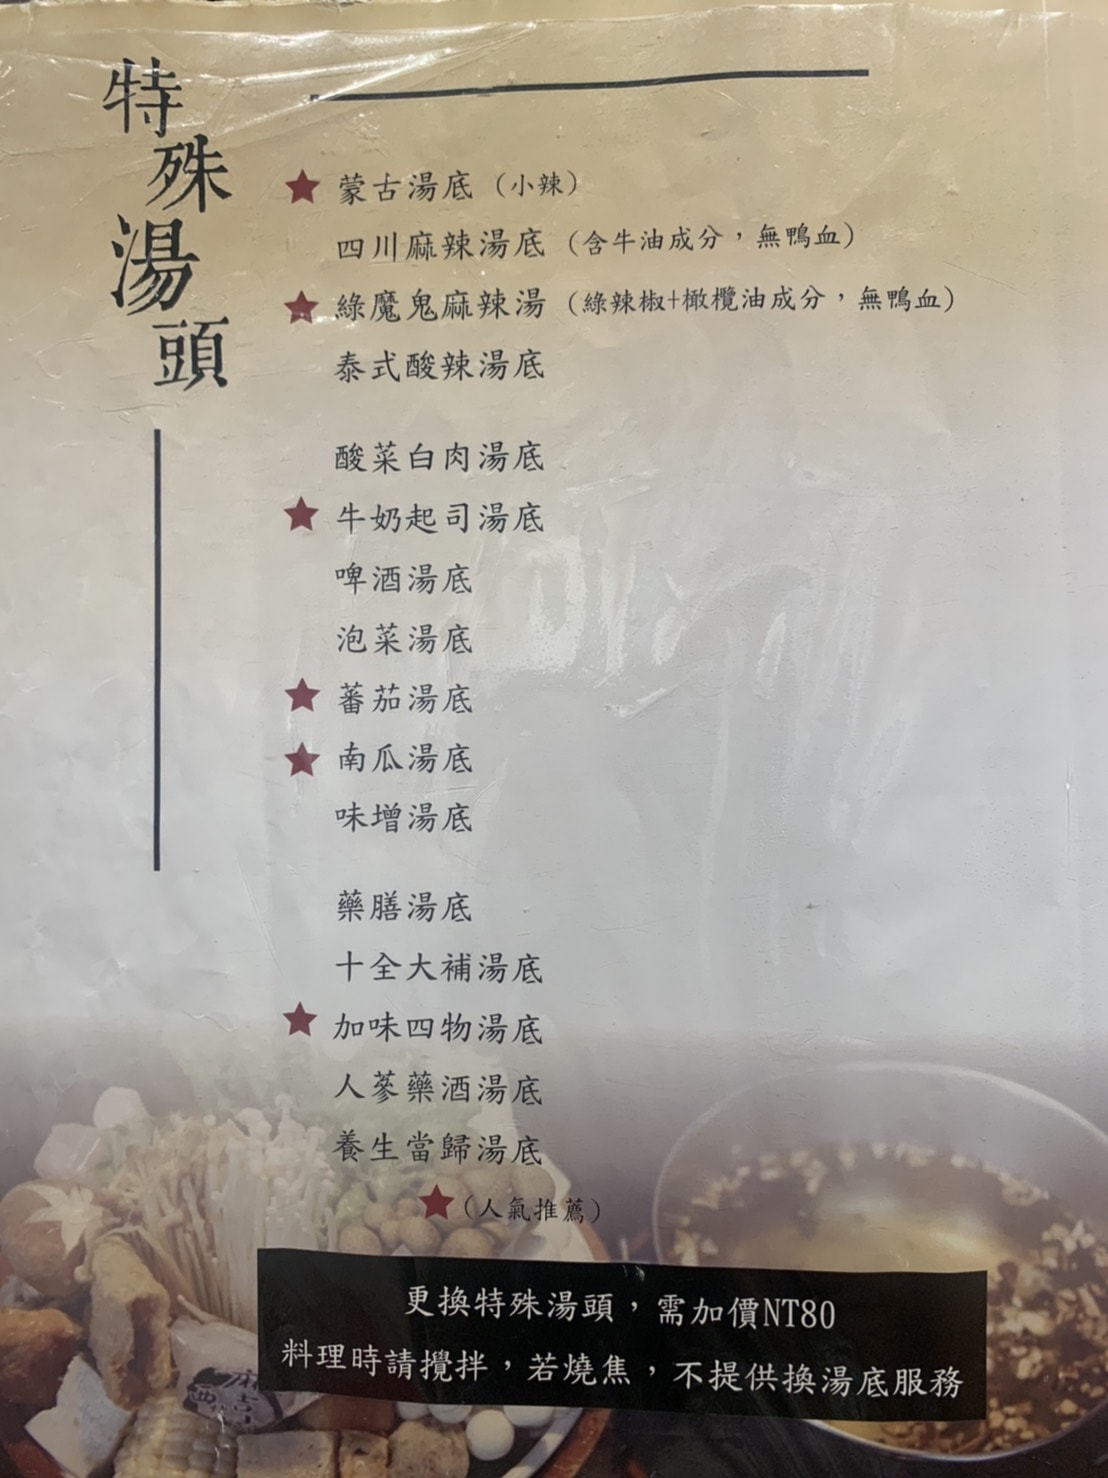 特殊湯頭
★ 蒙古湯底（小辣）
四川麻辣湯底（含牛油成分，無鴨血）
★ 綠魔鬼麻辣湯（綠辣椒+橄欖油成分，無鴨血）
泰式酸辣湯底
酸菜白肉湯底
★ 牛奶起司湯底
啤酒湯底
泡菜湯底
★ 蕃茄湯底
★ 南瓜湯底
味增湯底
藥膳湯底
十全大補湯底
★ 加味四物湯底
人蔘藥酒湯底
養生當歸湯底
★（人氣推薦）
更換特殊湯頭，需加價NT80
料理時請攪拌，若燒焦，不提供換湯底服務